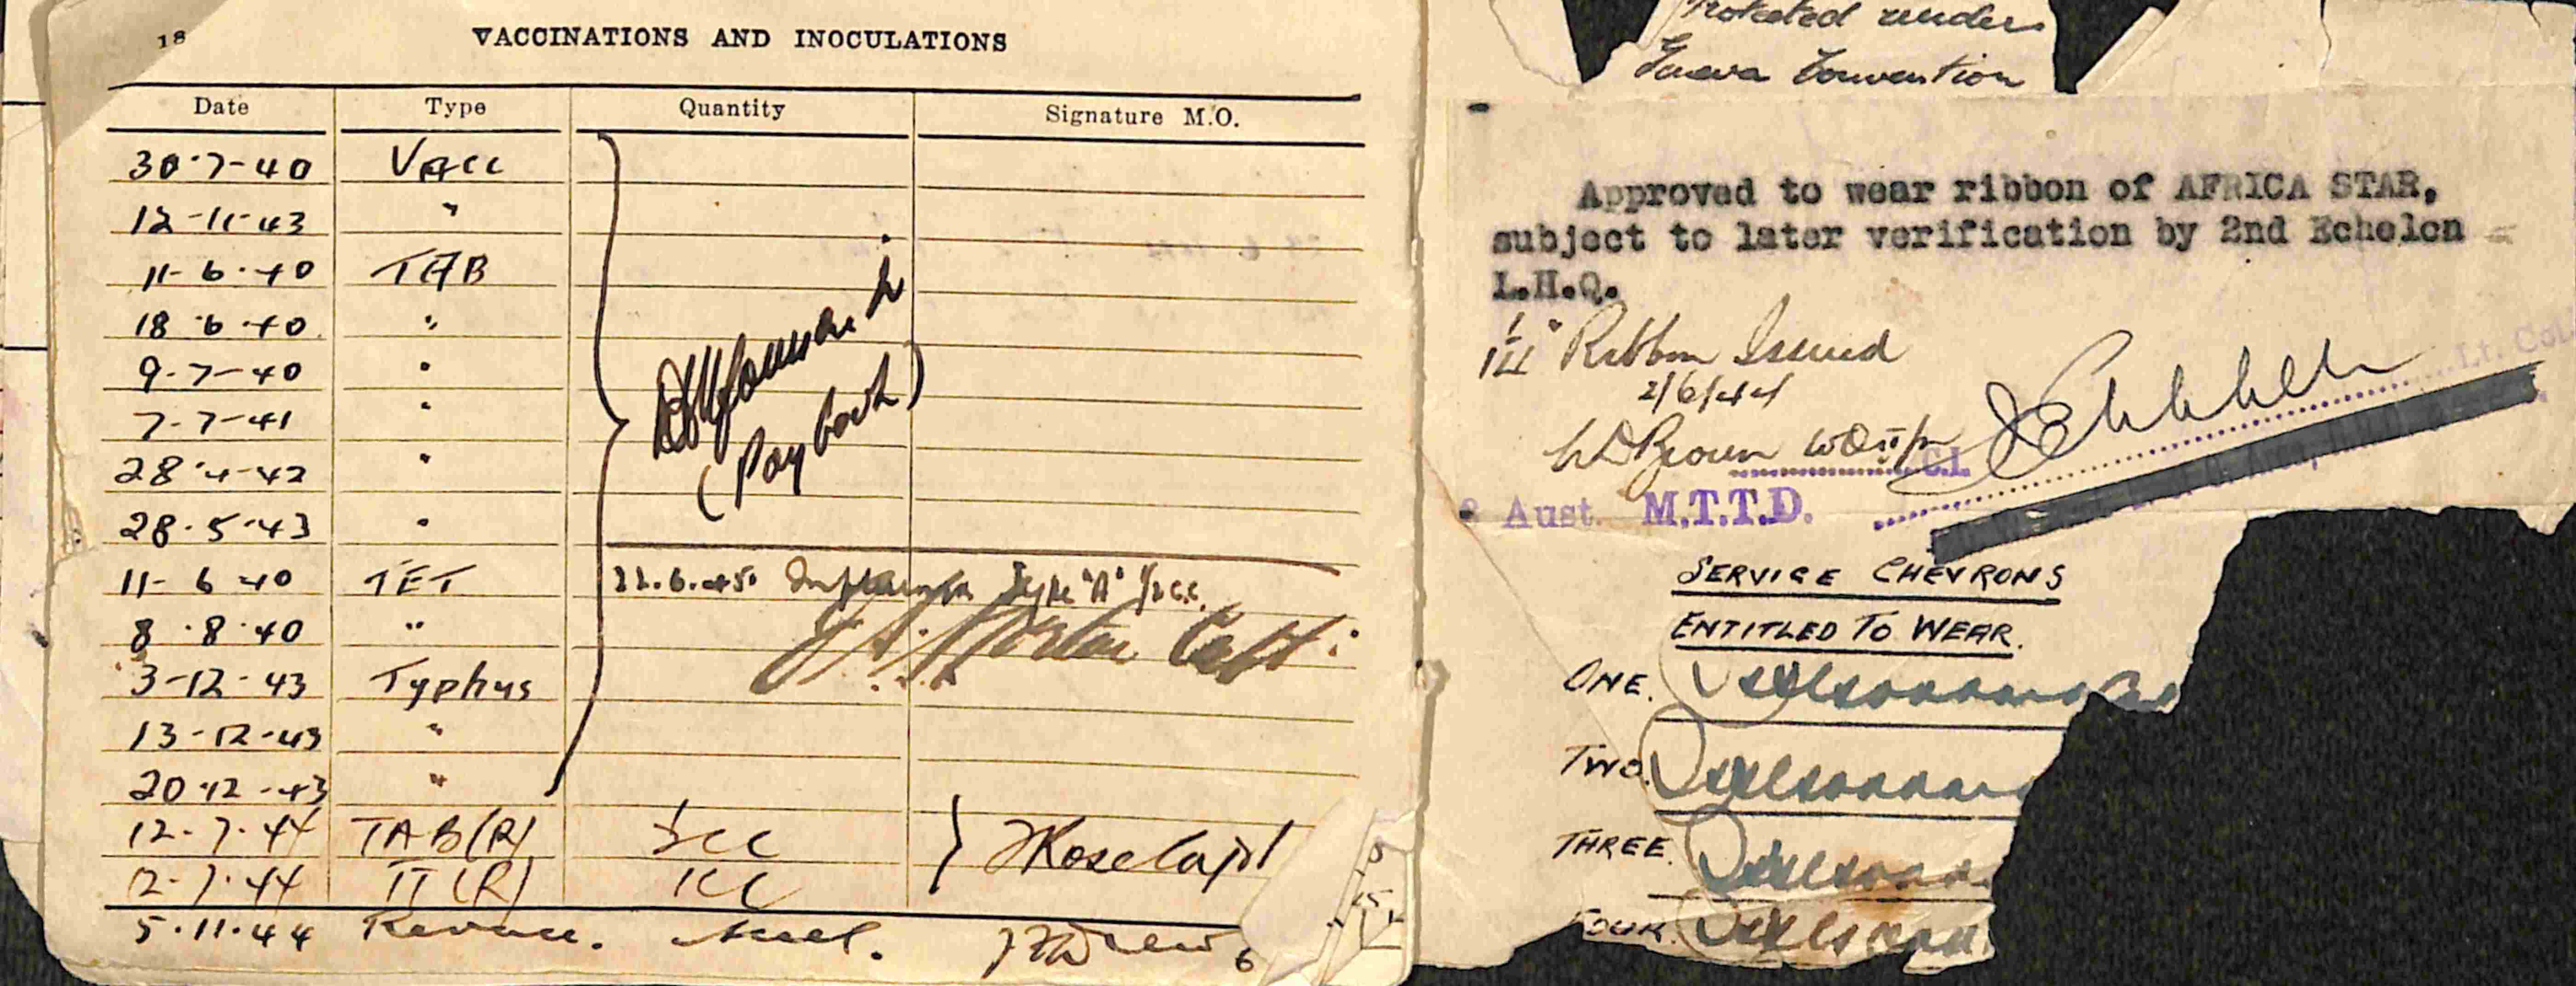 18
VACCINATIONS AND INOCULATIONS
Date Type Quantity Signature M.O.
30·7-40 Vacc
12-11-43 "
11-6·40 TAB
18·6·40 "
9-7-40 "
7-7-41 "
28·4-42 "
28·5·43 "
(Pay book)
11-6 40 TET 22.6.45. Influenza Type "A" ½ c.c.
8·8·40 " Capt.
3-12-43 Typhus
13-12-43 "
20·12-43 "
12-7-44 TAB(R) ½cc
12-7-44 TT(R) 1cc Rose Capt
5·11·44 Revacc.
Protected under
Geneva Convention
Approved to wear ribbon of AFRICA STAR,
subject to later verification by 2nd Echelon
L.H.Q.
Ribbon Issued
2/6/44
Brown WOII
C.I.
Lt. Col
Aust. M.T.T.D.
SERVICE CHEVRONS
ENTITLED TO WEAR.
ONE.
TWO.
THREE.
FOUR.